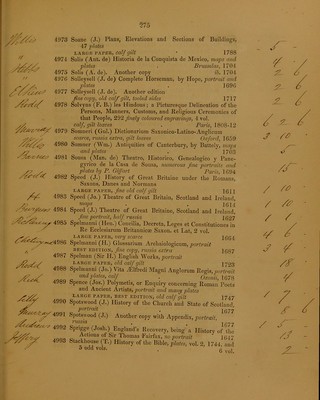 275
4973 Soane (J.) Plans, Elevations and Sections of Buildings,
47 plates
LARGE PAPER, calf gilt 1788
4974 Solis (Ant. de) Historia de la Conquista de Mexico, maps and
plates Brusselas, 1704
4975 Solis (A. de). Another copy ib. 1704
4976 Solleysell (J. de) Complete Horseman, by Hope, portrait and
plates 1696
4977 Solleysell (J. de). Another edition
fine copy, old calf gilt, tooled sides 1717
4978 Solvyns (F. B.) les Hindous; a Picturesque Delineation of the
Persons, Manners, Customs, and Religious Ceremonies of
that People, 292 finely coloured engravings, 4 vol.
calf, gilt leaves Paris, 1808-12
4979 Somneri (Gul.) Dictionarium Saxonico-Latino-Anglicum
scarce, russia extra, gilt leaves Oxford, 1659
4980 Somner (Wm.) Antiquities of Canterbury, by Battely, maps
and plates 1703
4981 Sousa (Man. de) Theatro, Historico, Genealogico y Pane-
gyrico de la Casa de Sousa, numerous fine portraits and
plates by P. Giffart Paris, 1694
4982 Speed (J.) History of Great Britaine under the Romans,
Saxons, Danes and Normans
LARGE PAPER, fine old calf gilt 1611
4983 Speed (Jo.) Theatre of Great Britain, Scotland and Ireland,
maps 1614
4984 Speed (J.) Theatre of Great Britain, Scotland and Ireland,
fine portrait, half russia 1627
4985 Spelmanni (Hen.) Concilia, Decreta, Leges et Constitutiones in
Re Ecclesiarum Britannicæ Saxon. et Lat. 2 vol.
LARGE PAPER, very scarce 1664
4986 Spelmanni (H.) Glossarium Archaiologicum, portrait
BEST EDITION, fine copy, russia extra 1687
4987 Spelman (Sir H.) English Works, portrait
LARGE PAPER, old calf gilt 1723
4988 Spelmanni (Jo.) Vita Ælfredi Magni Anglorum Regis, portrait
and plates, calf Oxonii, 1678
4989 Spence (Jos.) Polymetis, or Enquiry concerning Roman Poets
and Ancient Artists, portrait and many plates
LARGE PAPER, BEST EDITION, old calf gilt 1747
4990 Spotswood (J.) History of the Church and State of Scotland,
portrait 1677
4991 Spotswood (J.) Another copy with Appendix, portrait,
russia 1677
4992 Sprigge (Josh.) England's Recovery, being a History of the
Actions of Sir Thomas Fairfax, no portrait 1647
4993 Stackhouse (T.) History of the Bible, plates, vol. 2, 1744, and
5 odd vols. 6 vol.